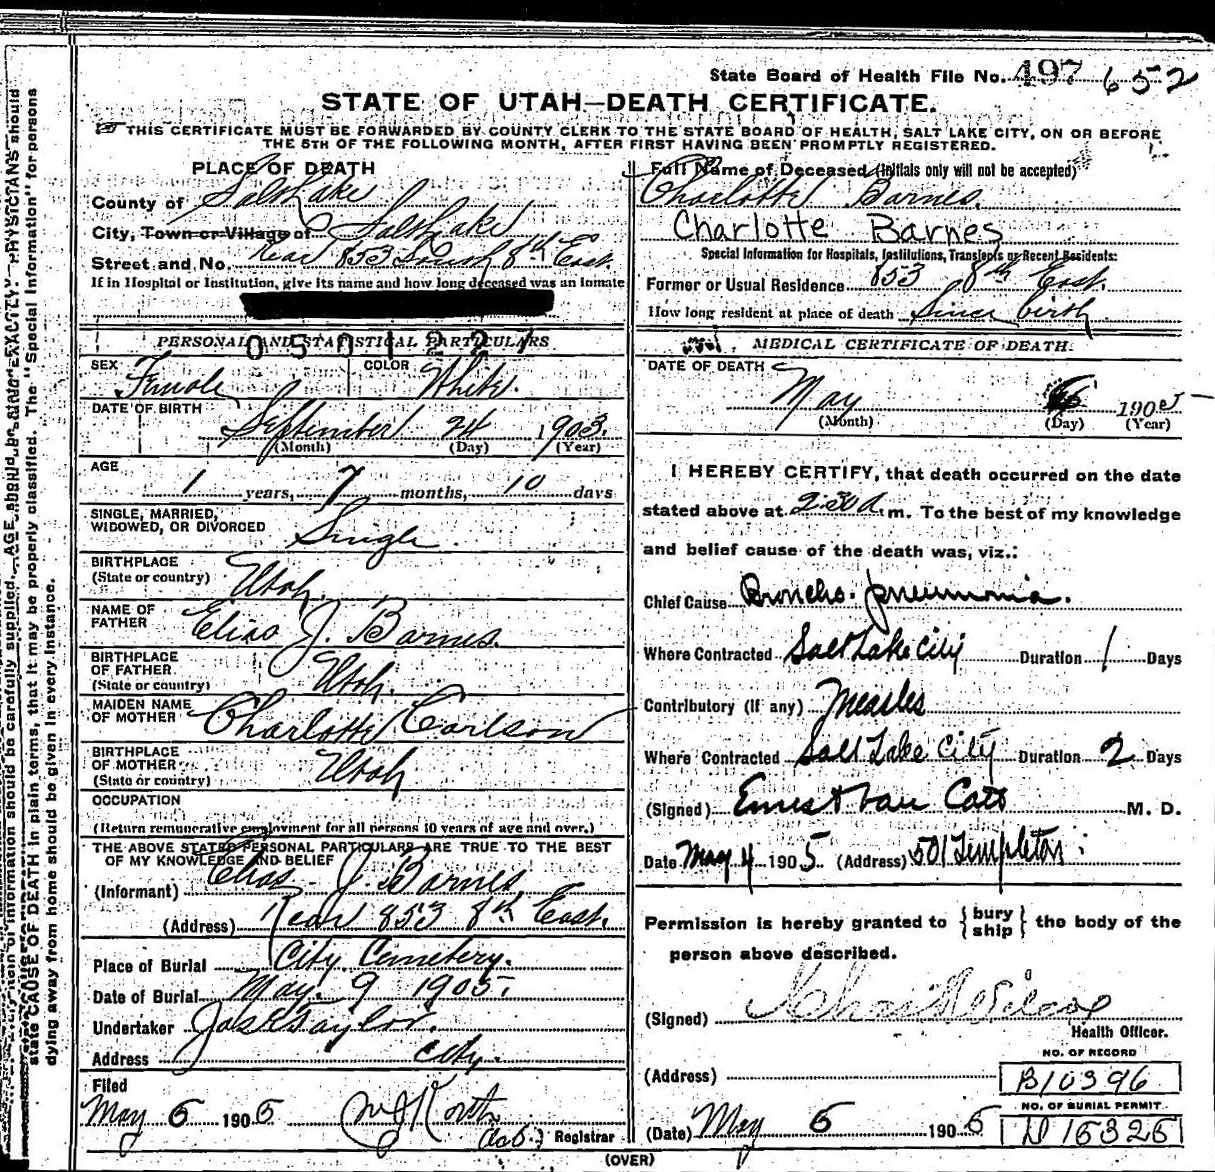 State Board of Health File No. 497 652
STATE OF UTAH—DEATH CERTIFICATE.
THIS CERTIFICATE MUST BE FORWARDED BY COUNTY CLERK TO THE STATE BOARD OF HEALTH, SALT LAKE CITY, ON OR BEFORE
THE 5TH OF THE FOLLOWING MONTH, AFTER FIRST HAVING BEEN PROMPTLY REGISTERED.
PLACE OF DEATH
County of Salt Lake
City, Town or Village of Salt Lake
Street and No. Rear 853 South 8th East.
If in Hospital or Institution, give its name and how long deceased was an inmate
0501227
PERSONAL AND STATISTICAL PARTICULARS
SEX Female COLOR White.
DATE OF BIRTH
September 24 1903.
(Month) (Day) (Year)
AGE
1 years, 7 months, 10 days
SINGLE, MARRIED,
WIDOWED, OR DIVORCED Single.
BIRTHPLACE
(State or country) Utah.
NAME OF
FATHER Elias J. Barnes.
BIRTHPLACE
OF FATHER
(State or country) Utah.
MAIDEN NAME
OF MOTHER Charlotte Carlson
BIRTHPLACE
OF MOTHER
(State or country) Utah
OCCUPATION
(Return remunerative employment for all persons 10 years of age and over.)
THE ABOVE STATED PERSONAL PARTICULARS ARE TRUE TO THE BEST
OF MY KNOWLEDGE AND BELIEF
(Informant) Elias J. Barnes,
(Address) Rear 853 8th East.
Place of Burial City Cemetery.
Date of Burial May. 9 1905.
Undertaker Taylor.
Address City.
Filed
May 6 1905
Registrar
Full Name of Deceased (Initials only will not be accepted)
Charlotte Barnes.
Charlotte Barnes
Special Information for Hospitals, Institutions, Transients or Recent Residents:
Former or Usual Residence 853 8th East.
How long resident at place of death Since birth
MEDICAL CERTIFICATE OF DEATH.
DATE OF DEATH
May 1905
(Month) (Day) (Year)
I HEREBY CERTIFY, that death occurred on the date
stated above at 2:30 A. m. To the best of my knowledge
and belief cause of the death was, viz.:
Chief Cause Broncho-pneumonia.
Where Contracted Salt Lake City Duration 1 Days
Contributory (if any) Measles
Where Contracted Salt Lake City Duration 2 Days
(Signed) Ernest Van Cott M. D.
Date May 4 1905 (Address) 501 Templeton
Permission is hereby granted to { bury
ship } the body of the
person above described.
(Signed)
Health Officer.
NO. OF RECORD
(Address) B10396
NO. OF BURIAL PERMIT
(Date) May 6 1905 D 15325
(OVER)
state CAUSE OF DEATH in plain terms, that it may be properly classified. The "Special Information" for persons
dying away from home should be given in every instance.